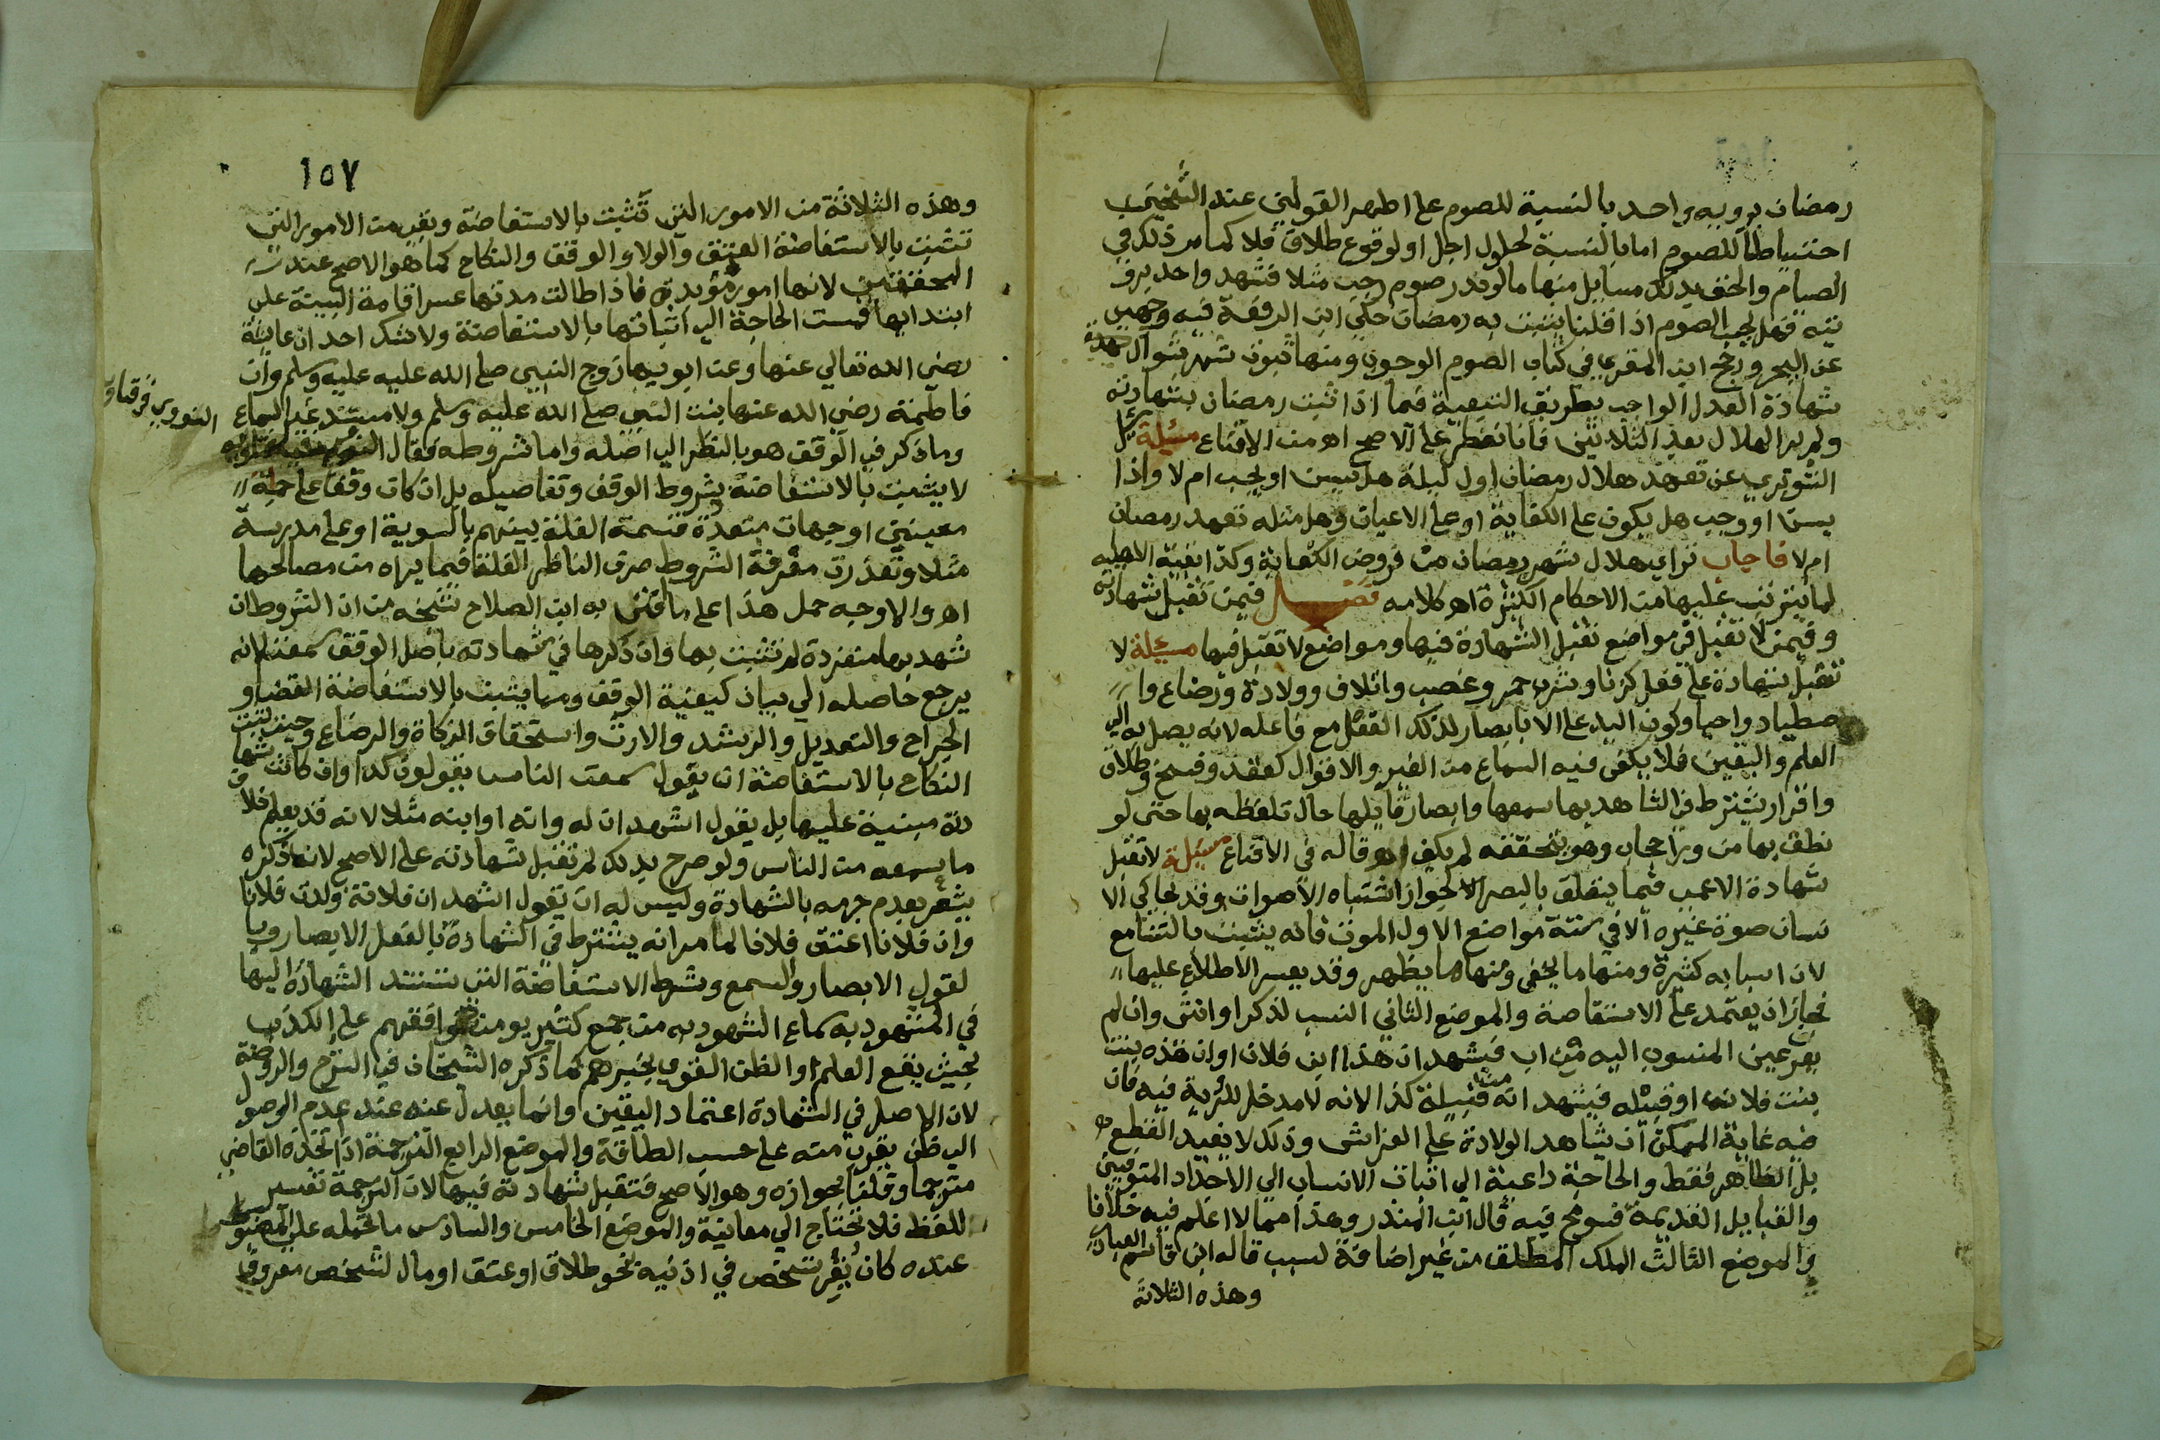 رمضان بروية واحد بالنسبة للصوم على اظهر القولين عند الشيخين
احتياطا للصوم اما بالنسبة لحلول اجل او لوقوع طلاق فلا كما مر ذلك في
الصيام والحق بذلك مسايل منها ما لو نذر صوم رجب مثلا فشهد واحد برو
يته فهل يجب الصوم اذا قلنا يثبت به رمضان حكى ابن الرفعة فيه وجهين
عن البحر ورجح ابن المقري في كتاب الصوم الوجوب ومنها ثبوت شهر شوال
شهادة العدل الواجب بطريق التبعية فيما اذا ثبت رمضان بشهادته
ولم ير الهلال بعد الثلاثين فانا نفطر على الاصح اه من الاقناع مسيلة سئل
عن تعهد هلال رمضان اول ليلة هل يسن او يجب ام لا واذا
يسن او وجب هل يكون على الكفاية او على الاعيان وهل مثله تعهد رمضان
ام لا فاجاب تراي هلال شهر رمضان من فروض الكفاية وكذا بقية الاهله
لما يترتب عليها من الاحكام الكثيرة اه كلامه فصل فيمن تقبل شهادته
وفيمن لا تقبل في مواضع تقبل الشهادة فيها ومواضع لا تقبل فيها مسيلة لا
تقبل شهادة على فعل كزنا وشرب خمر وغصب واتلاف وولادة ورضاع وا
صطياد واحيا وكون اليد على الا بابصار لذلك الفعل مع فاعله لانه يصل به الي
العلم واليقين فلا يكفي فيه السماع من الغير والاقوال كعقد وفسخ وطلاق
واقرار يشترط في الشاهد بها سمعها وابصار قايلها حال تلفظه بها حتى لو
نطق بها من ورا حجاب وهو يتحققه لم يكف قاله في الاقناع مسيلة لا تقبل
شهادة الاعمى فيما يتعلق بالبصر لجواز اشتباه الاصوات وقد يحاكي الا
نسان صوة غيره الا في ستة مواضع الاول الموت فانه يثبت بالتسامع
لان اسبابه كثيرة ومنها ما يخفى ومنها ما يظهر وقد يعسر الاطلاع عليها
فجاز ان يعتمد على الاستفاضة والموضع الثاني النسب لذكر او انثى وان لم
يعرف عين المنسوب اليه من اب فيشهد ان هذا ابن فلان او ان هذه بنت
بنت فلانه او قبيله فيشهد انه من قبيلة كذا لانه لا مدخل للروية فيه فان
غاية الممكن ان يشاهد الولادة على الفراش وذلك لا يفيد القطع
بل الظاهر فقط والحاجة داعية الي اثبات الانساب الي الاجداد المتوفين
والقبايل القديمة فسومح فيه قال ابن المنذر وهذا مما لا اعلم فيه خلافا
والموضع الثالث الملك المطلق من غير اضافة لسبب قاله ابن قاسم العبادي
وهذه الثلاثة
١٥٧
وهذه الثلاثة من الامور التي تثبت بالاستفاضة وبقي من الامور التي
تثبت بالاستفاضة العتق والولاء والوقف والنكاح كما هو الاصح عند
المحققين لانها امور مؤبدة فاذا طالت مدتها عسر اقامة البينة على
ابتدايها فمست الحاجة الي اثباتها بالاستفاضة ولا شك احد ان عايشة
رضي الله تعالي عنها وعن ابويها زوج النبي صلى الله عليه عليه وسلم وان
فاطمة رضي الله عنها بنت النبي صلى الله عليه وسلم ولا مستند غير السماع
وما ذكر في الوقف هو بالنظر الي اصله واما شروطه فقال
النووي في فتاو
لا يثبت بالاستفاضة شروط الوقف وتفاصيله بل ان كان وقفا على جماعة
معينين او جهات متعددة قسمت الغلة بينهم بالسوية او على مدرسة
مثلا وتعذرت معرفة الشروط صرف الناظر الغلة فيما يراه من مصالحها
اه والاوجه حمل هذا على ما افتى به ابن الصلاح شيخه من ان الشروط ان
شهد بها منفردة لم تثبت بها وان ذكرها في شهادته باصل الوقف سمعت لانه
يرجع حاصله الي بيان كيفية الوقف ومما يثبت بالاستفاضة القضا و
الجراح والتعديل والرشد والارث واستحقاق الزكاة والرضاع وحيث يثبت
النكاح بالاستفاضة ان يقول سمعت الناس يقولون كذا وان كانت شها
دته مبنية عليها بل يقول اشهد ان له وانه او ابنه مثلا لانه قد يعلم خلاف
ما يسمعه من الناس ولو صرح بذلك لم تقبل شهادته على الاصح لان ذكره
يشعر بعدم جزمه بالشهادة وليس له ان يقول اشهد ان فلانة ولدت فلانا
وان فلانا اعتق فلانا لما مر انه يشترط في الشهادة بالفعل الابصار وبا
لقول الابصار والسمع وشرط الاستفاضة التي تستند الشهادة اليها
في المشهود به سماع المشهود به من جمع كثير يومن توافقهم على الكذب
بحيث يقع العلم او الظن القوي بخبرهم كما ذكره الشيخان في الشرح والروضة
لان الاصل في الشهادة اعتماد اليقين وانما يعدل عنه عند عدم الوصول
اليه الى ظن يقرب منه على حسب الطاقة والموضع الرابع الترجمة اذا اتخذه القاضي
مترجما وقلنا بجوازه وهو الاصح فتقبل شهادته فيها لان الترجمة تفسير
للفظ فلا تحتاج الي معاينة والموضع الخامس والسادس ما تحمله على المضبوط
عنده كان يقر شخص في اذنيه بنحو طلاق او عتق او مال لشخص معروف